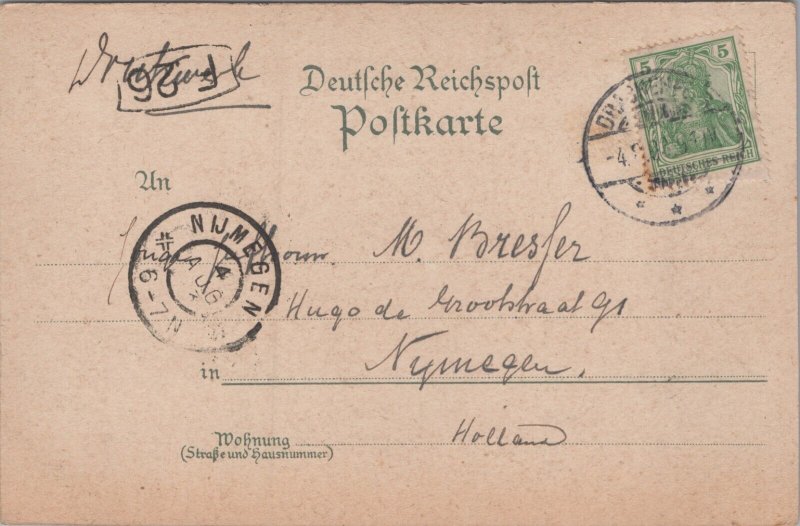 Drucksache
F 26
Deutsche Reichspost
Postkarte
5 5
DEUTSCHES REICH
-4.
An
NIJMEGEN
4
AUG
7-9 N
M. Bresser
Hugo de Grootstraat 91
in Nymegen.
Wohnung
(Straße und Hausnummer)
Holland